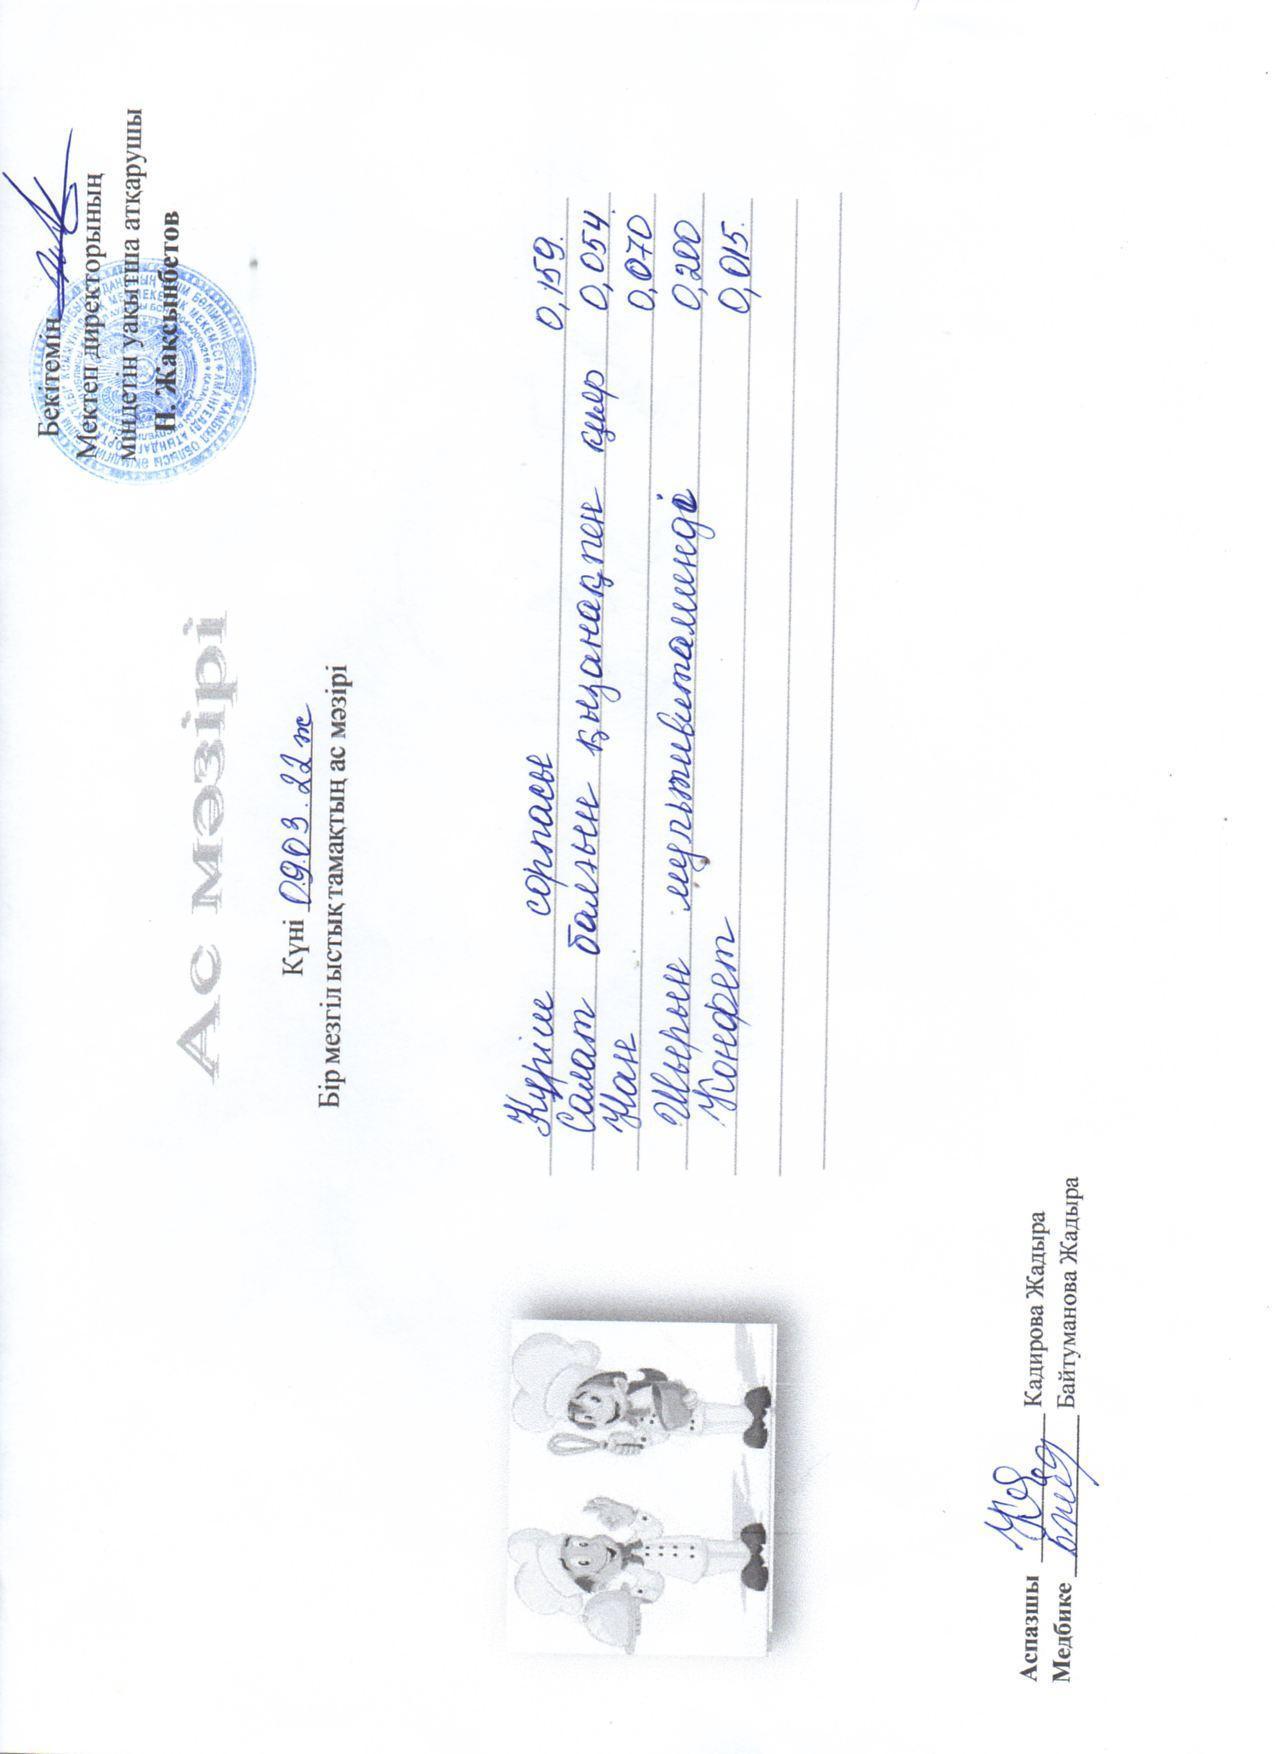 Бекітемін
Мектеп директорының
міндетін уақытша атқарушы
Н. Жаксынбетов
Ас мәзірі
Күні 09.03.22 ж
Бір мезгіл ыстық тамақтың ас мәзірі
Күріш сорпасы 0,159.
Салат балғын қызанақпен қияр 0,054.
Нан 0,070
Шырын мультивитаминді 0,200
Конфет 0,015.
Аспазшы Кадирова Жадыра
Медбике Байтуманова Жадыра